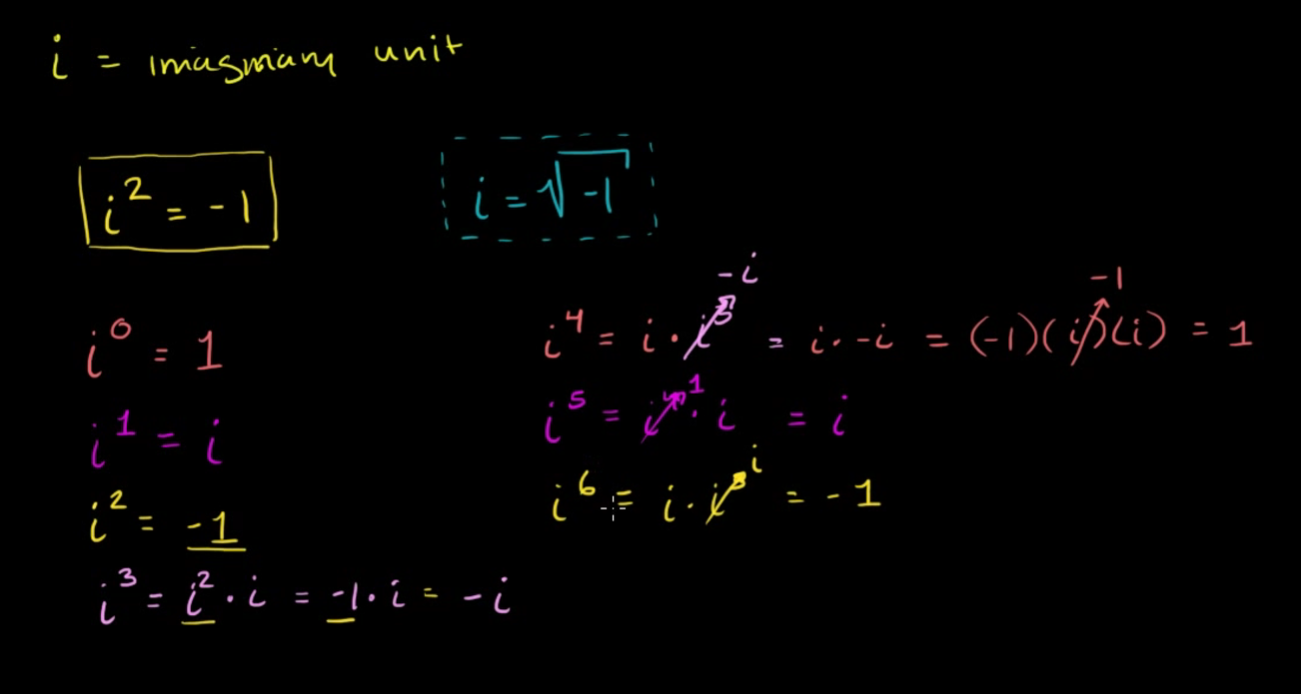 i = imaginary unit
i² = -1
i = √-1
i⁰ = 1
i¹ = i
i² = -1
i³ = i² · i = -1 · i = -i
-i -1
i⁴ = i · i³ = i · -i = (-1)(i)(i) = 1
1
i⁵ = i⁴ · i = i
i
i⁶ = i · i⁵ = -1